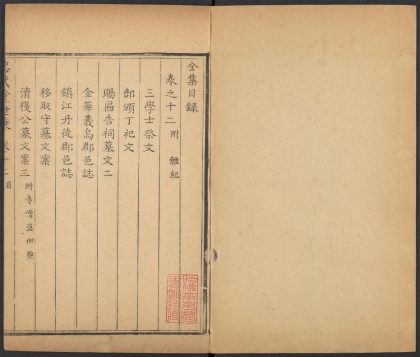 全集目錄
卷之十二 附 雜紀
三學士祭文
部頒丁祀文
賜區告祠墓文二
金華義烏郡邑誌
鎮江丹徒郡邑誌
移取守墓文案
清復公墓文案三 附寺僧盜佃契